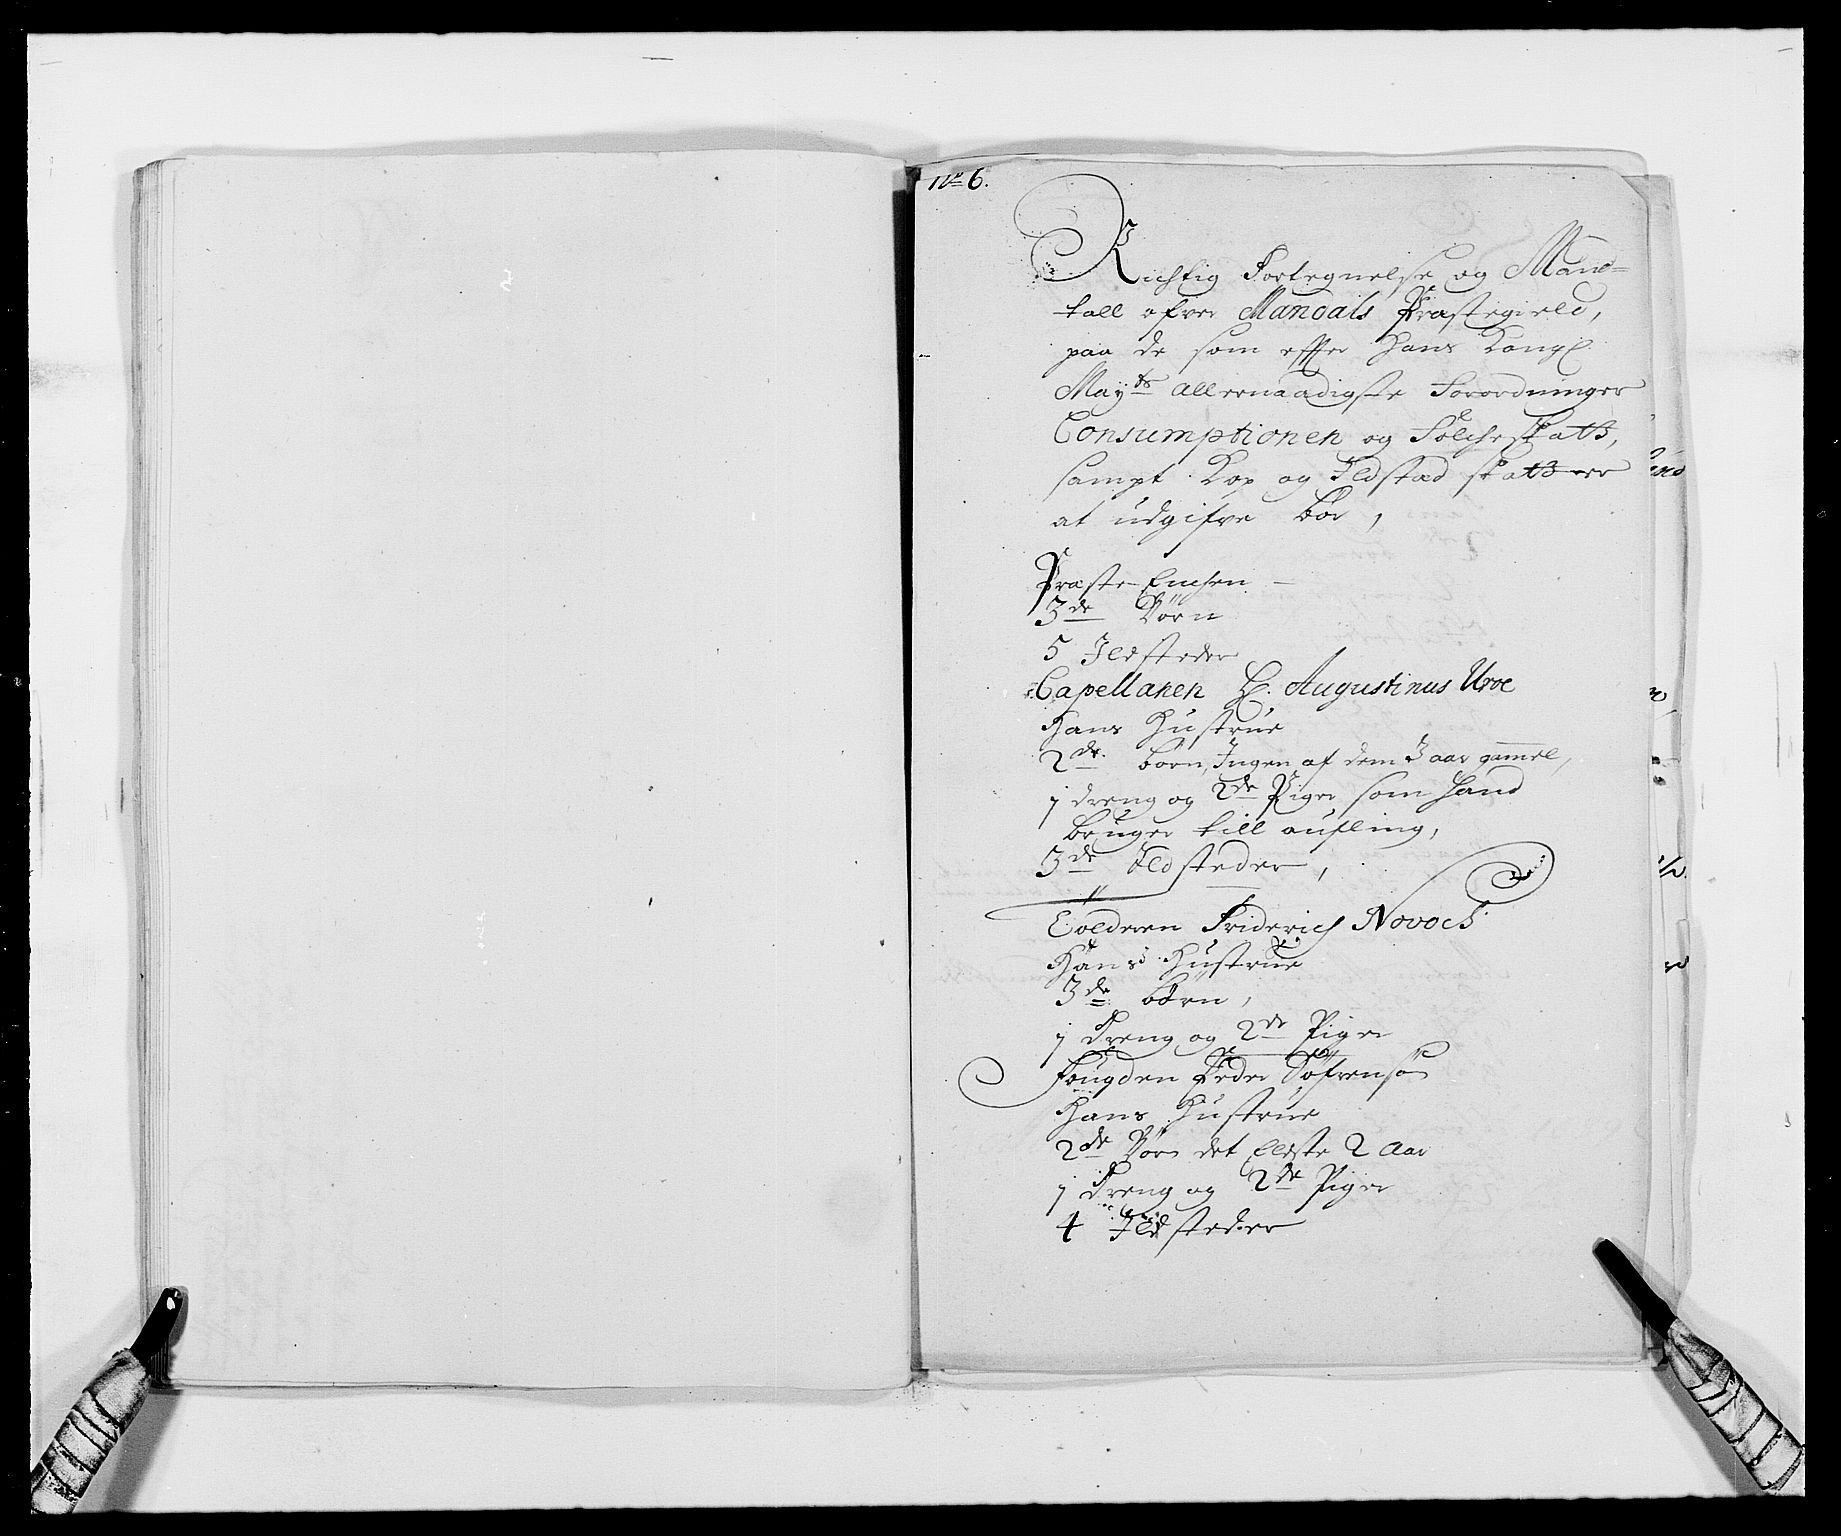 No 6.
Richtig Fortegnelse og Mand=
tall ofver Mandals Præstegield,
paa de som effter Hans Kongl
Mayts allernaadigste Forordninger
Consumptionen og Folcheskatt,
sampt Kop og Ildstæd skatter
at udgifve bør,
Præste Enchen
3de Børn
5 Ildsteder
Capellanen H. Augustinus Uroe
Hans Hustrue
2de børn, Ingen af dem 3 aar gammel,
1 dreng og 2de Piger som hand
bruger till aufling,
3de Ildsteder,
Tolderen Friderich Novoch
Hans Hustrue
3de børn,
1 Dreng og 2de Piger
Fougden Peder Søfrensøn
Hans Hustrue
2de Børn det Eldste 2 Aar
1 Dreng og 2de Piger
4 Ildsteder